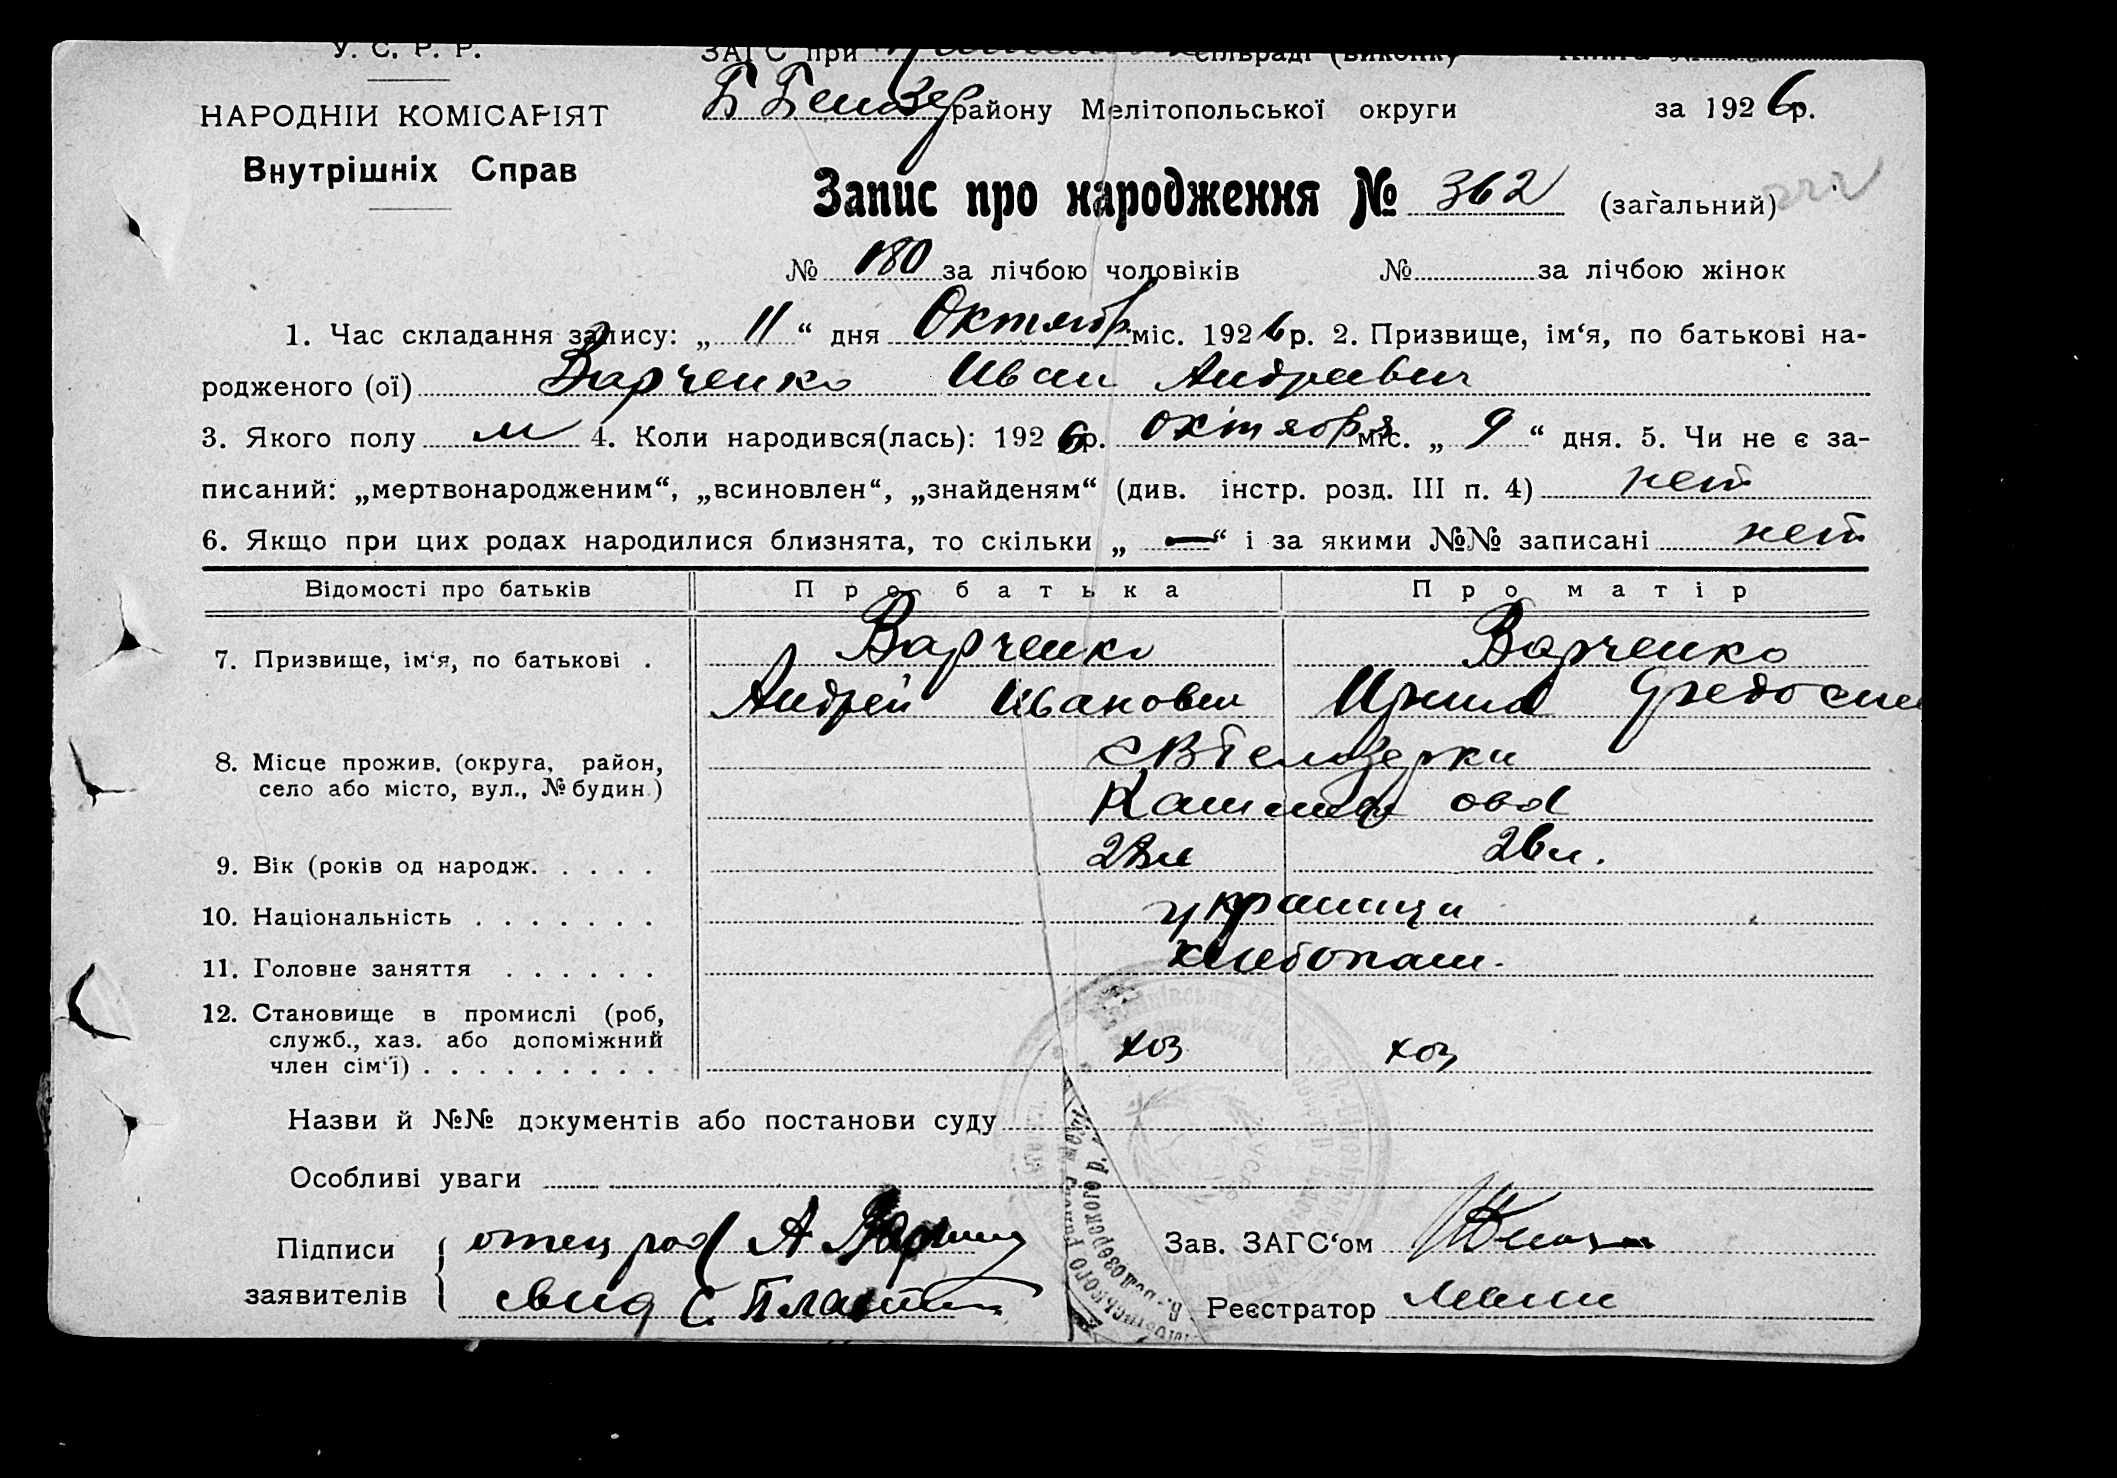 У. С. Р. Р.
ЗАГС при сільраді (виконк)
НАРОДНІЙ КОМІСАРІЯТ
Внутрішніх Справ
Б Белозер району Мелітопольської округи за 1926 р.
Запис про народження № 362 (загальний)
№ 180 за лічбою чоловіків № за лічбою жінок
1. Час складання запису: „ 11 “ дня Октябр міс. 1926 р. 2. Призвище, ім‘я, по батькові на-
родженого (ої) Варченко Иван Андреевич
3. Якого полу м 4. Коли народився(лась): 1926 р. октября міс. „ 9 “ дня. 5. Чи не є за-
писаний: „мертвонародженим“, „всиновлен“, „знайденям“ (див. інстр. розд. III п. 4) нет
6. Якщо при цих родах народилися близнята, то скільки „ — “ і за якими №№ записані нет
Відомості про батьків Про батька Про матір
7. Призвище, ім‘я, по батькові . Варченко Варченко
Андрей Иванович Ирина Федосие
8. Місце прожив. (округа, район,
село або місто, вул., № будин.)
Белозерки
9. Вік (років од народж. . . . . 28 л 26 л.
10. Національність . . . . . . . украинци
11. Головне заняття . . . . . . хлебопаш.
12. Становище в промислі (роб,
служб., хаз. або допоміжний
член сім‘ї) . . . . . . . . . хоз хоз
Назви й №№ документів або постанови суду
Особливі уваги
Підписи
заявителів
отец А Варч
свид С.
Зав. ЗАГС‘ом
Реєстратор